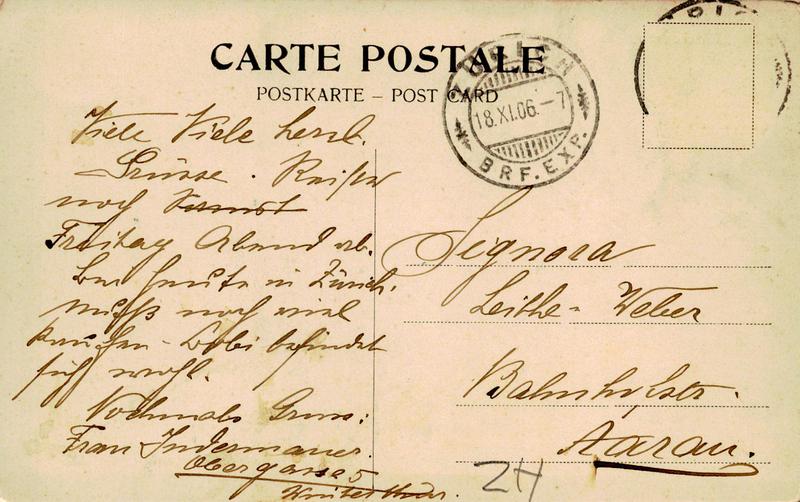 CARTE POSTALE
POSTKARTE – POST CARD
ZÜRICH
18.XI.06.–7
BRF. EXP.
Viele Viele herzl.
Grüsse. Reise
noch
Freitag Abend ab.
Bin heute in Zürich.
Muss noch viel
kaufen – Bobi befindet
sich wohl.
Nochmals Gruss:
Frau Indermauer.
Obergasse 5
Winterthur.
Signora
Leithe-Weber
Bahnhofstr.
Aarau.
ZH